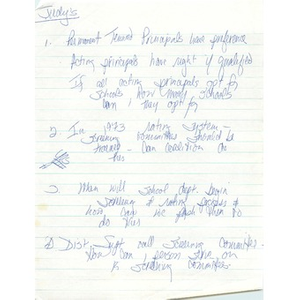 Judy's
1. Permanent Tenured Principals have preference
Acting principals have right if qualified
If all acting principals opt for
schools how many schools
can they opt for
2. In 1973 rating system -
Screening committees should be
trained - Can coalition do
this
3. When will school dept. begin
screening & rating process &
how can we push them to
do this
4) Dist. Supt. call Screening Committee -
How can 1 person serve on
Screening Committees